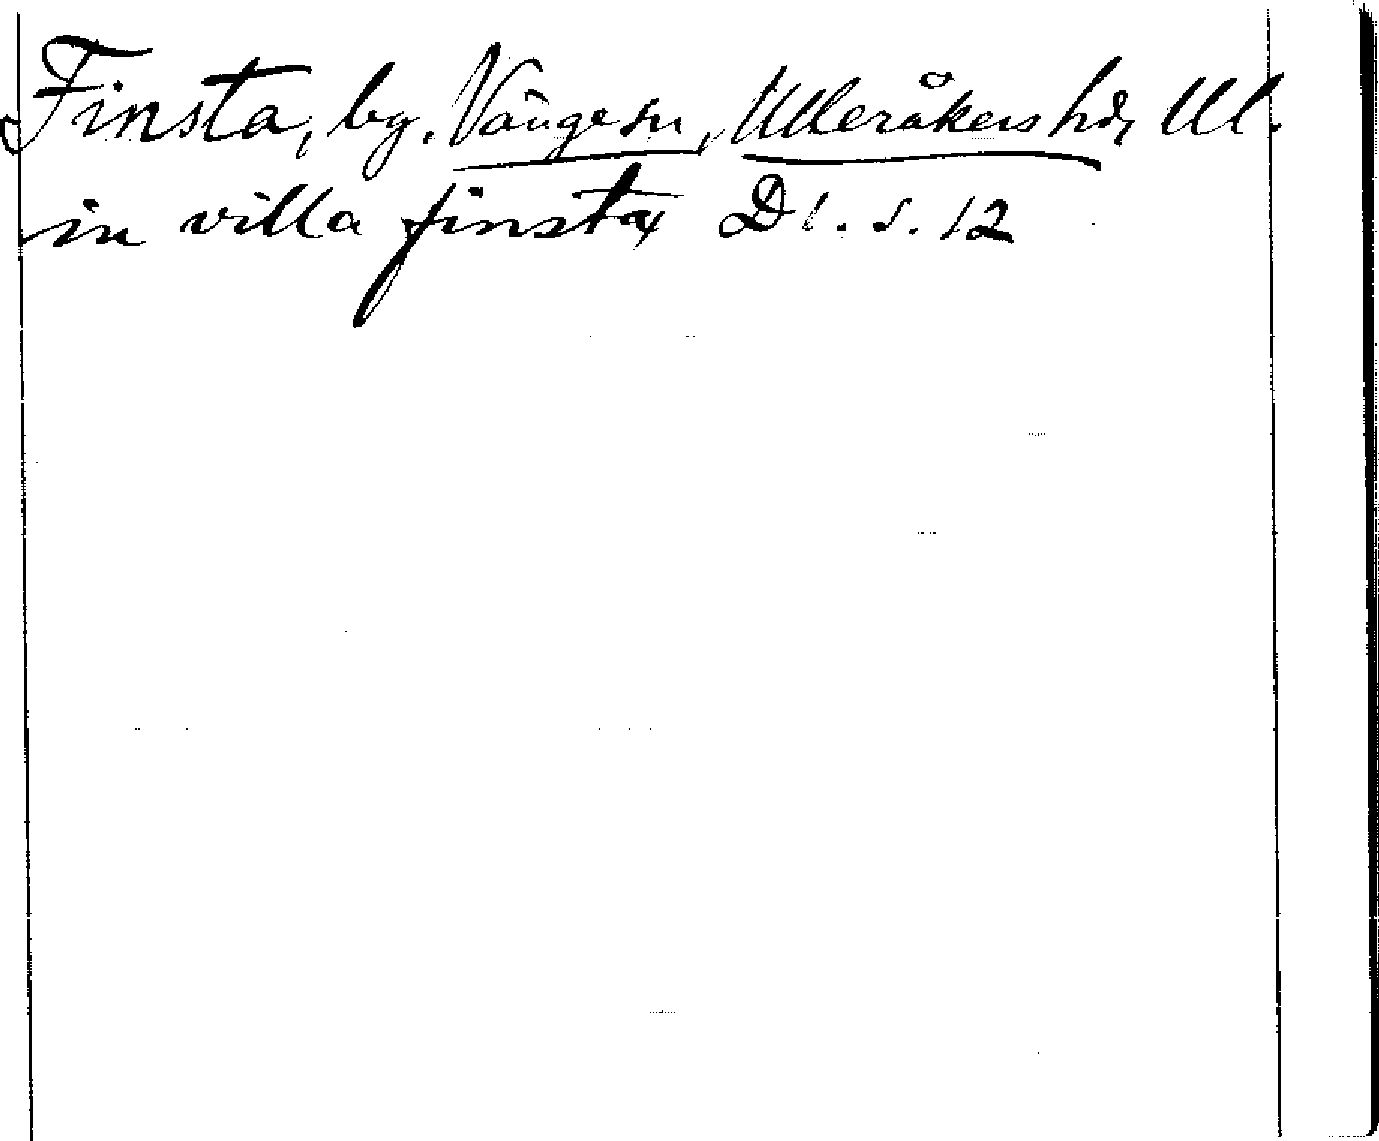 Finsta, by, Vänge sn, Ulleråkers hd, Ul.
in villa finsta D1. s. 12